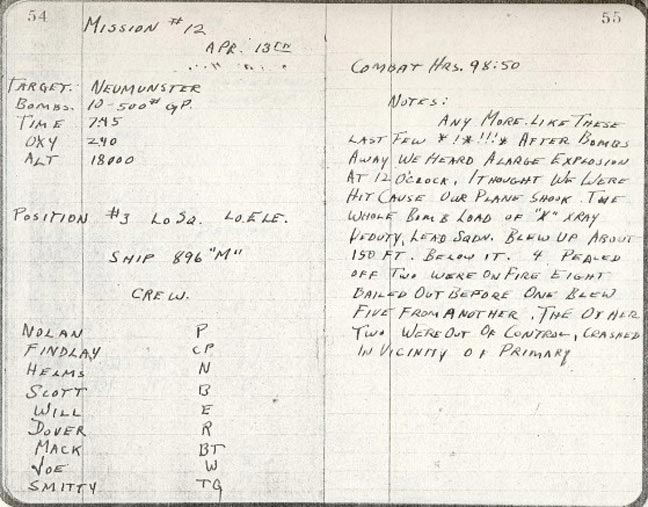 54
MISSION #12
APR. 13TH
TARGET: NEUMUNSTER
BOMBS. 10-500# GP.
TIME 7:45
OXY 240
ALT 18000
POSITION #3 LO SQ. LO. ELE.
SHIP 896 "M"
CREW.
NOLAN P
FINDLAY CP
HELMS N
SCOTT B
WILL E
DOVER R
MACK BT
JOE W
SMITTY TG
55
COMBAT HRS. 98:50
NOTES:
ANY MORE LIKE THESE
LAST FEW *!*!!!* AFTER BOMBS
AWAY WE HEARD A LARGE EXPLOSION
AT 12 O'CLOCK, I THOUGHT WE WERE
HIT CAUSE OUR PLANE SHOOK. THE
WHOLE BOMB LOAD OF "X" XRAY
LEAD SQDN. BLEW UP ABOUT
150 FT. BELOW IT. 4 PEALED
OFF TWO WERE ON FIRE EIGHT
BAILED OUT BEFORE ONE BLEW
FIVE FROM ANOTHER. THE OTHER
TWO WERE OUT OF CONTROL, CRASHED
IN VICINITY OF PRIMARY